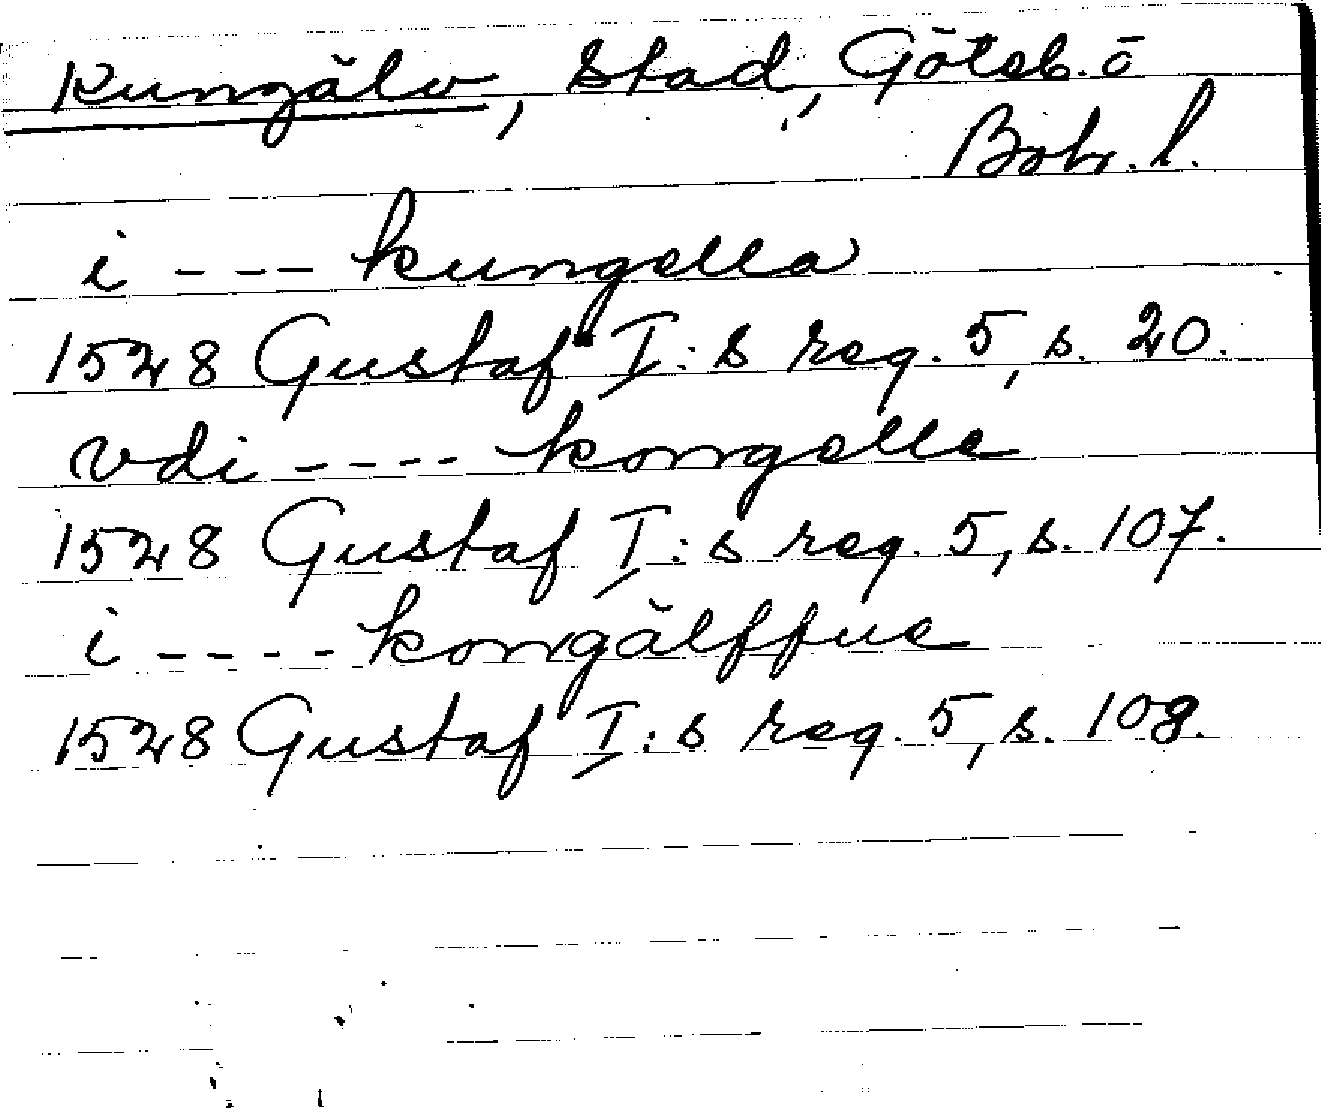 Kungälv, stad, Göteb. o
Boh. l.
i --- kungella
1528 Gustaf I:s reg. 5, s. 20.
vdi ---- kongelle
1528 Gustaf I:s reg. 5, s. 107.
i ---- kongälffue
1528 Gustaf I:s reg. 5, s. 108.